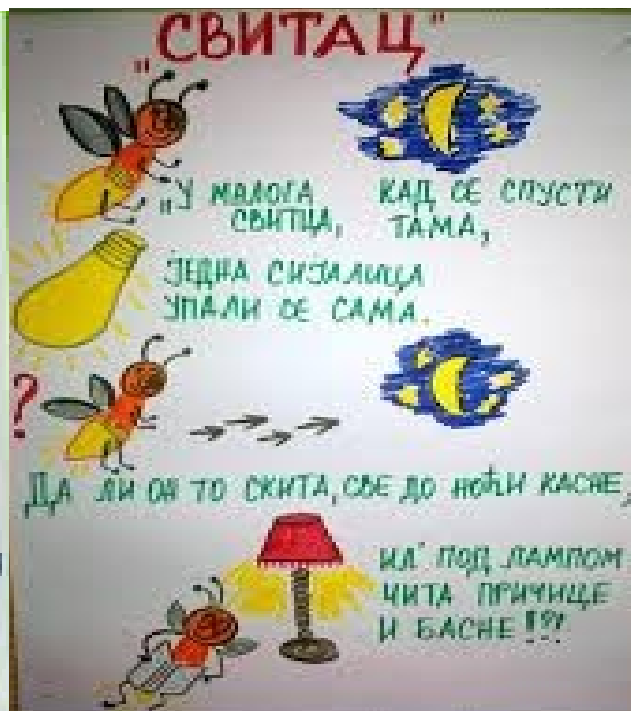 "СВИТАЦ"
"У МАЛОГА СВИТЦА,
КАД СЕ СПУСТИ ТАМА,
ЈЕДНА СИЈАЛИЦА
УПАЛИ СЕ САМА.
?
ДА ЛИ ОН ТО СКИТА, СВЕ ДО НОЋИ КАСНЕ,
ИЛ' ПОД ЛАМПОМ
ЧИТА ПРИЧИЦЕ
И БАСНЕ!?!